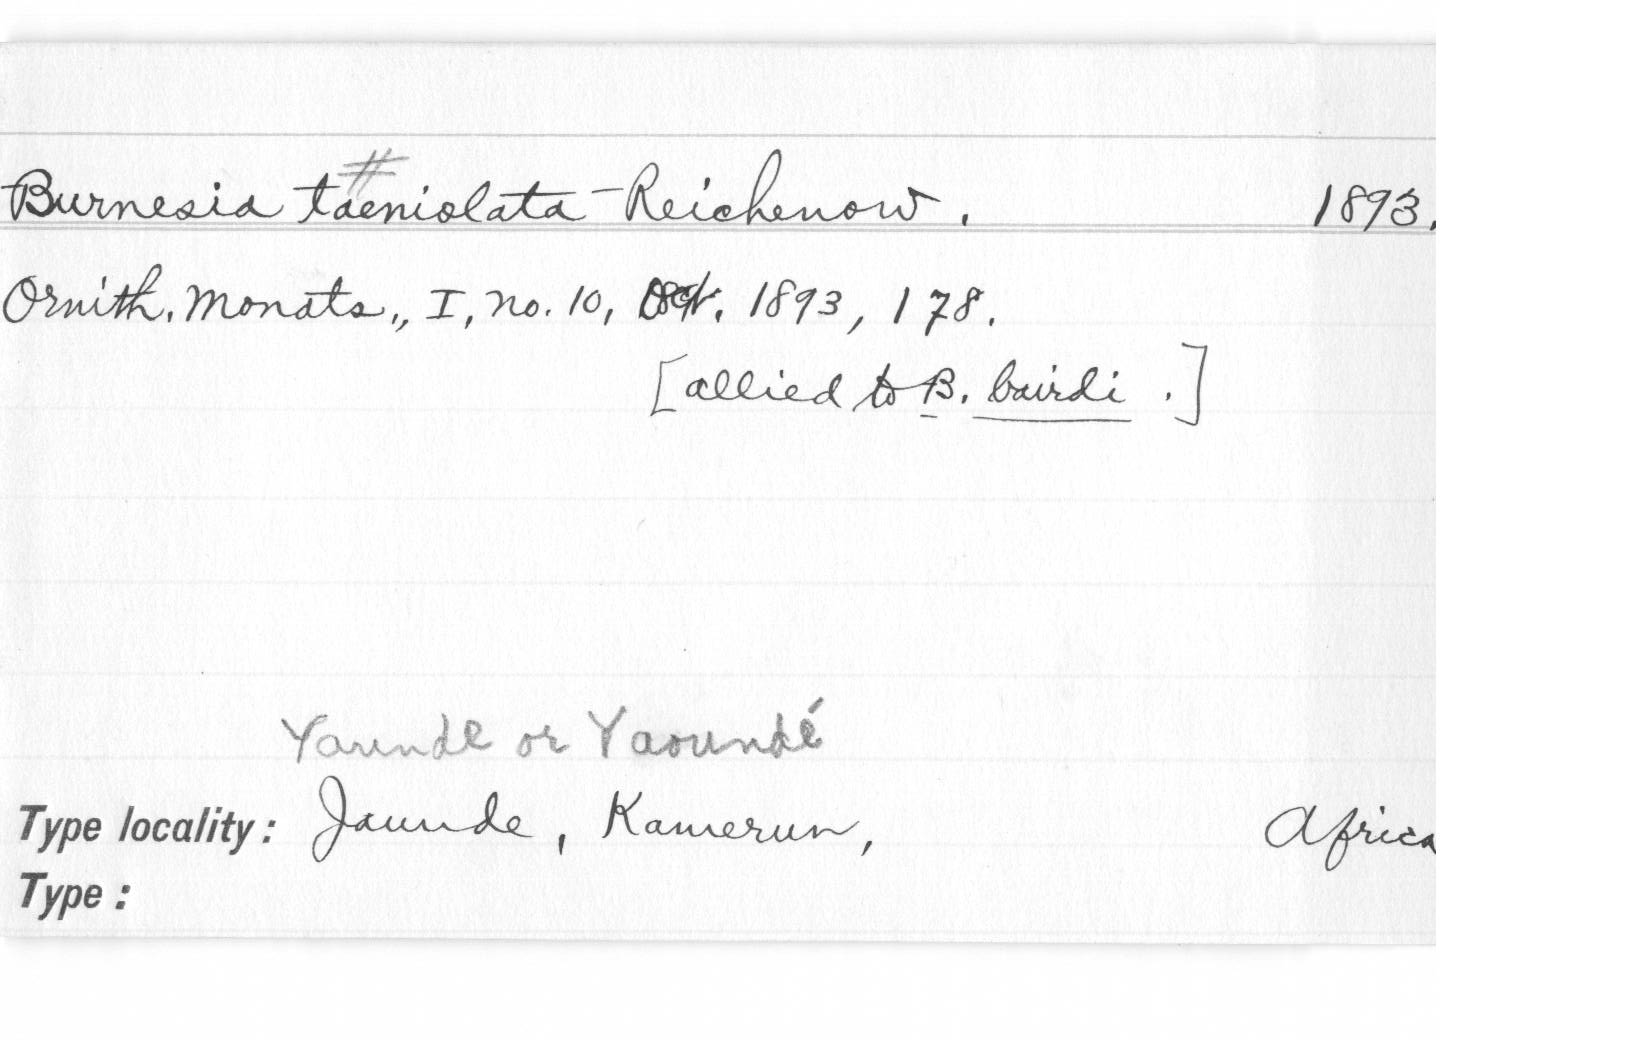 #
Burnesia taeniolata - Reichenow. 1893.
Ornith. Monats., I, no. 10, Oct. 1893, 178.
[allied to B. bairdi .]
Yaunde or Yaoundé
Type locality: Jaunde, Kamerun, Africa
Type: